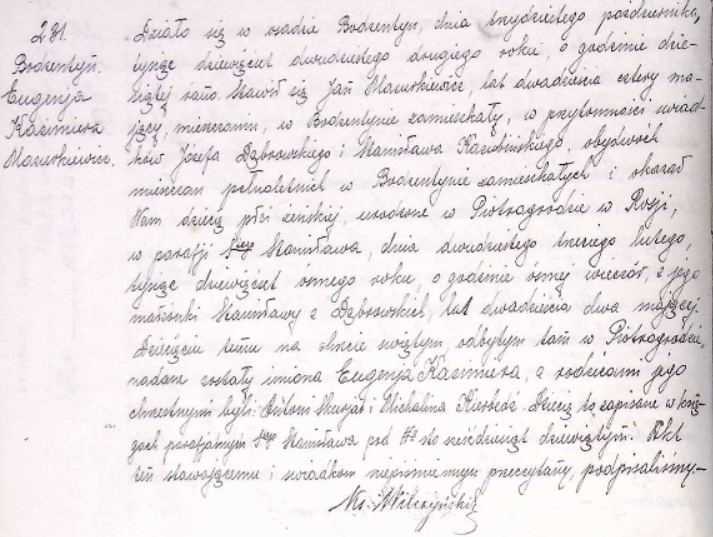 231.
Bodzentyn.
Eugenja
Kazimiera
Mazurkiewicz.
Działo się w osadzie Bodzentyn, dnia trzydziestego października,
tysiąc dziewięćset dwudziestego drugiego roku, o godzinie dzie-
siątej rano. Stawił się Jan Mazurkiewicz, lat dwadzieścia cztery ma-
jący, mieszczanin, w Bodzentynie zamieszkały, w przytomności świad-
ków Józefa Dąbrowskiego i Stanisława Kazubińskiego, obydwóch
mieszczan pełnoletnich w Bodzentynie zamieszkałych i okazał
Nam dziecię płci żeńskiej, urodzone w Piotrogrodzie w Rosji,
w parafji Stanisława, dnia dwudziestego trzeciego lutego,
tysiąc dziewięćset ósmego roku, o godzinie ósmej wieczór, z jego
małżonki Stanisławy z Dąbrowskich, lat dwadzieścia dwa mającej.
Dziecięciu temu na chrzcie świętym, odbytym tam w Piotrogrodzie,
nadane zostały imiona Eugenja Kazimiera, a rodzicami jego
chrzestnymi byli: Antoni Skurjat i Michalina Kierbedź. Dziecię to zapisane w księ-
gach parafjalnych Stanisława pod № sto sześćdziesiąt dziewiątym. Akt
ten stawającemu i świadkom niepiśmiennym przeczytany, podpisaliśmy—
Ks. Wilczyński